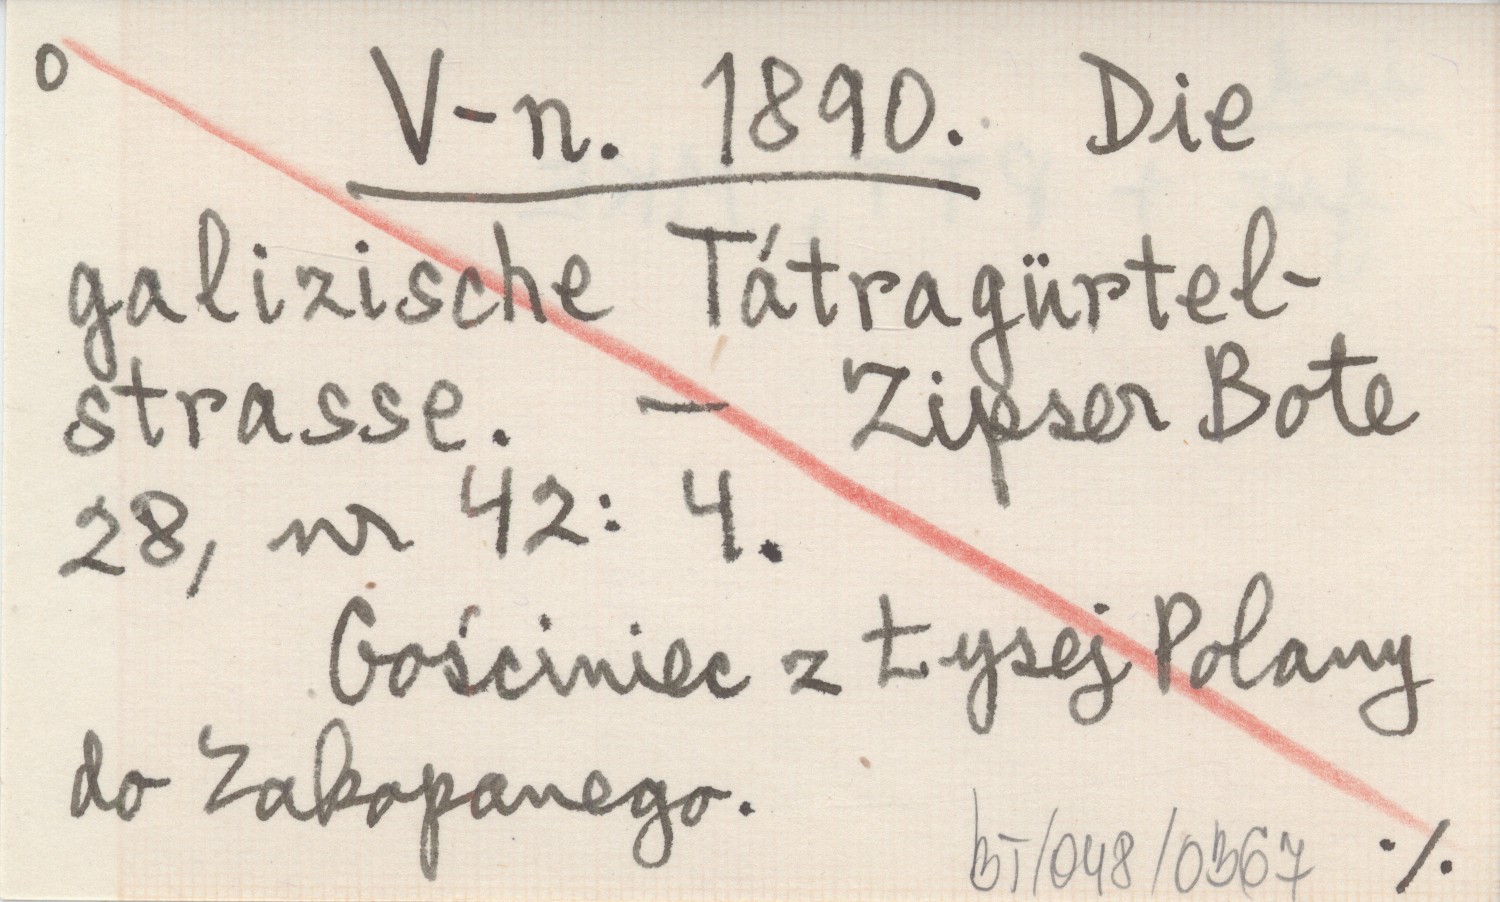 o V-n. 1890. Die
galizische Tátragürtel-
strasse. — Zipser Bote
28, nr 42: 4.
Gościniec z Łysej Polany
do Zakopanego.
BT/048/0367 ./.